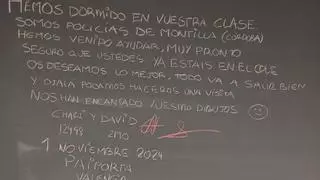 HEMOS DORMIDO EN VUESTRA CLASE.
SOMOS POLICÍAS DE MONTILLA (CÓRDOBA)
HEMOS VENIDO AYUDAR, MUY PRONTO
SEGURO QUE USTEDES YA ESTAIS EN EL COLE
OS DESEAMOS LO MEJOR, TODO VA A SALIR BIEN
Y OJALA PODAMOS HACEROS UNA VISITA
NOS HAN ENCANTADO VUESTRO DIBUJOS
CHARI Y DAVID
12498 2170
1 NOVIEMBRE 2024
PAIPORTA
VALENCIA